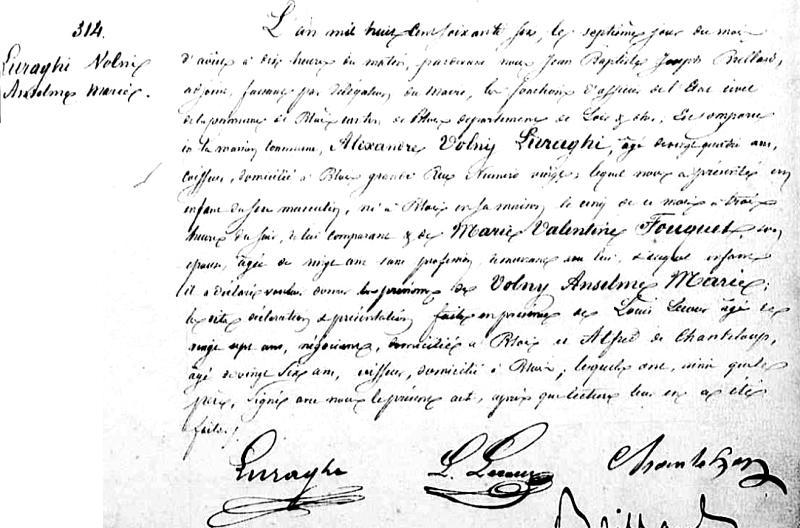 314.
Luraghi Volny
Anselme Marie.
L'an mil huit cent soixante six, le septième jour du mois
d'avril à dix heures du matin, pardevant nous Jean Baptiste Joseph
adjoint, faisant par délégation du Maire, les fonctions d'officier de l'État civil
de la commune de Blois canton de Blois département de Loir & cher, Est comparu
en la maison commune, Alexandre Volny Luraghi, âgé de vingt quatre ans,
coiffeur, domicilié à Blois grande Rue Numéro lequel nous a présenté un
enfant du sexe masculin, né à Blois en sa maison le cinq de ce mois à trois
heures du soir, de lui comparant & de Marie Valentine Fouquet, son
épouse, âgée de vingt ans sans profession, avec lui, & auquel enfant
il a déclaré vouloir donner les prénoms de Volny Anselme Marie;
les dites déclaration & présentation faites en présence de Louis Leroux âgé de
vingt sept ans, négociant, domicilié à Blois et Alfred de Chanteloup,
âgé de vingt six ans, coiffeur, domicilié à Blois; lesquels ont, ainsi que le
père, signé avec nous le présent acte, après que lecture leur en a été
faite.
Luraghi L. Leroux Chanteloup